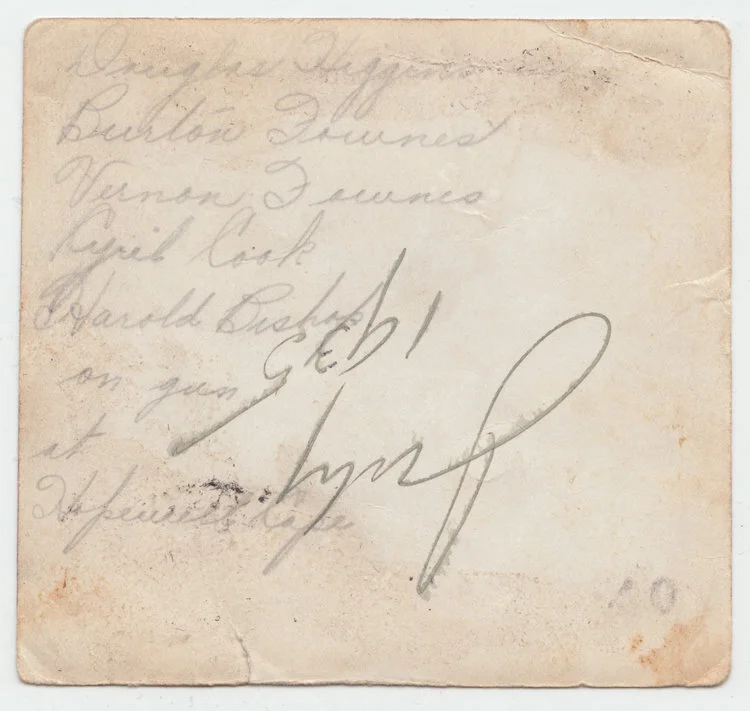 Douglas Higgins
Burton Downes
Vernon Downes
Cyril Cook
Harold Bishop
on gun
at
Hopewell Cape
July
1935